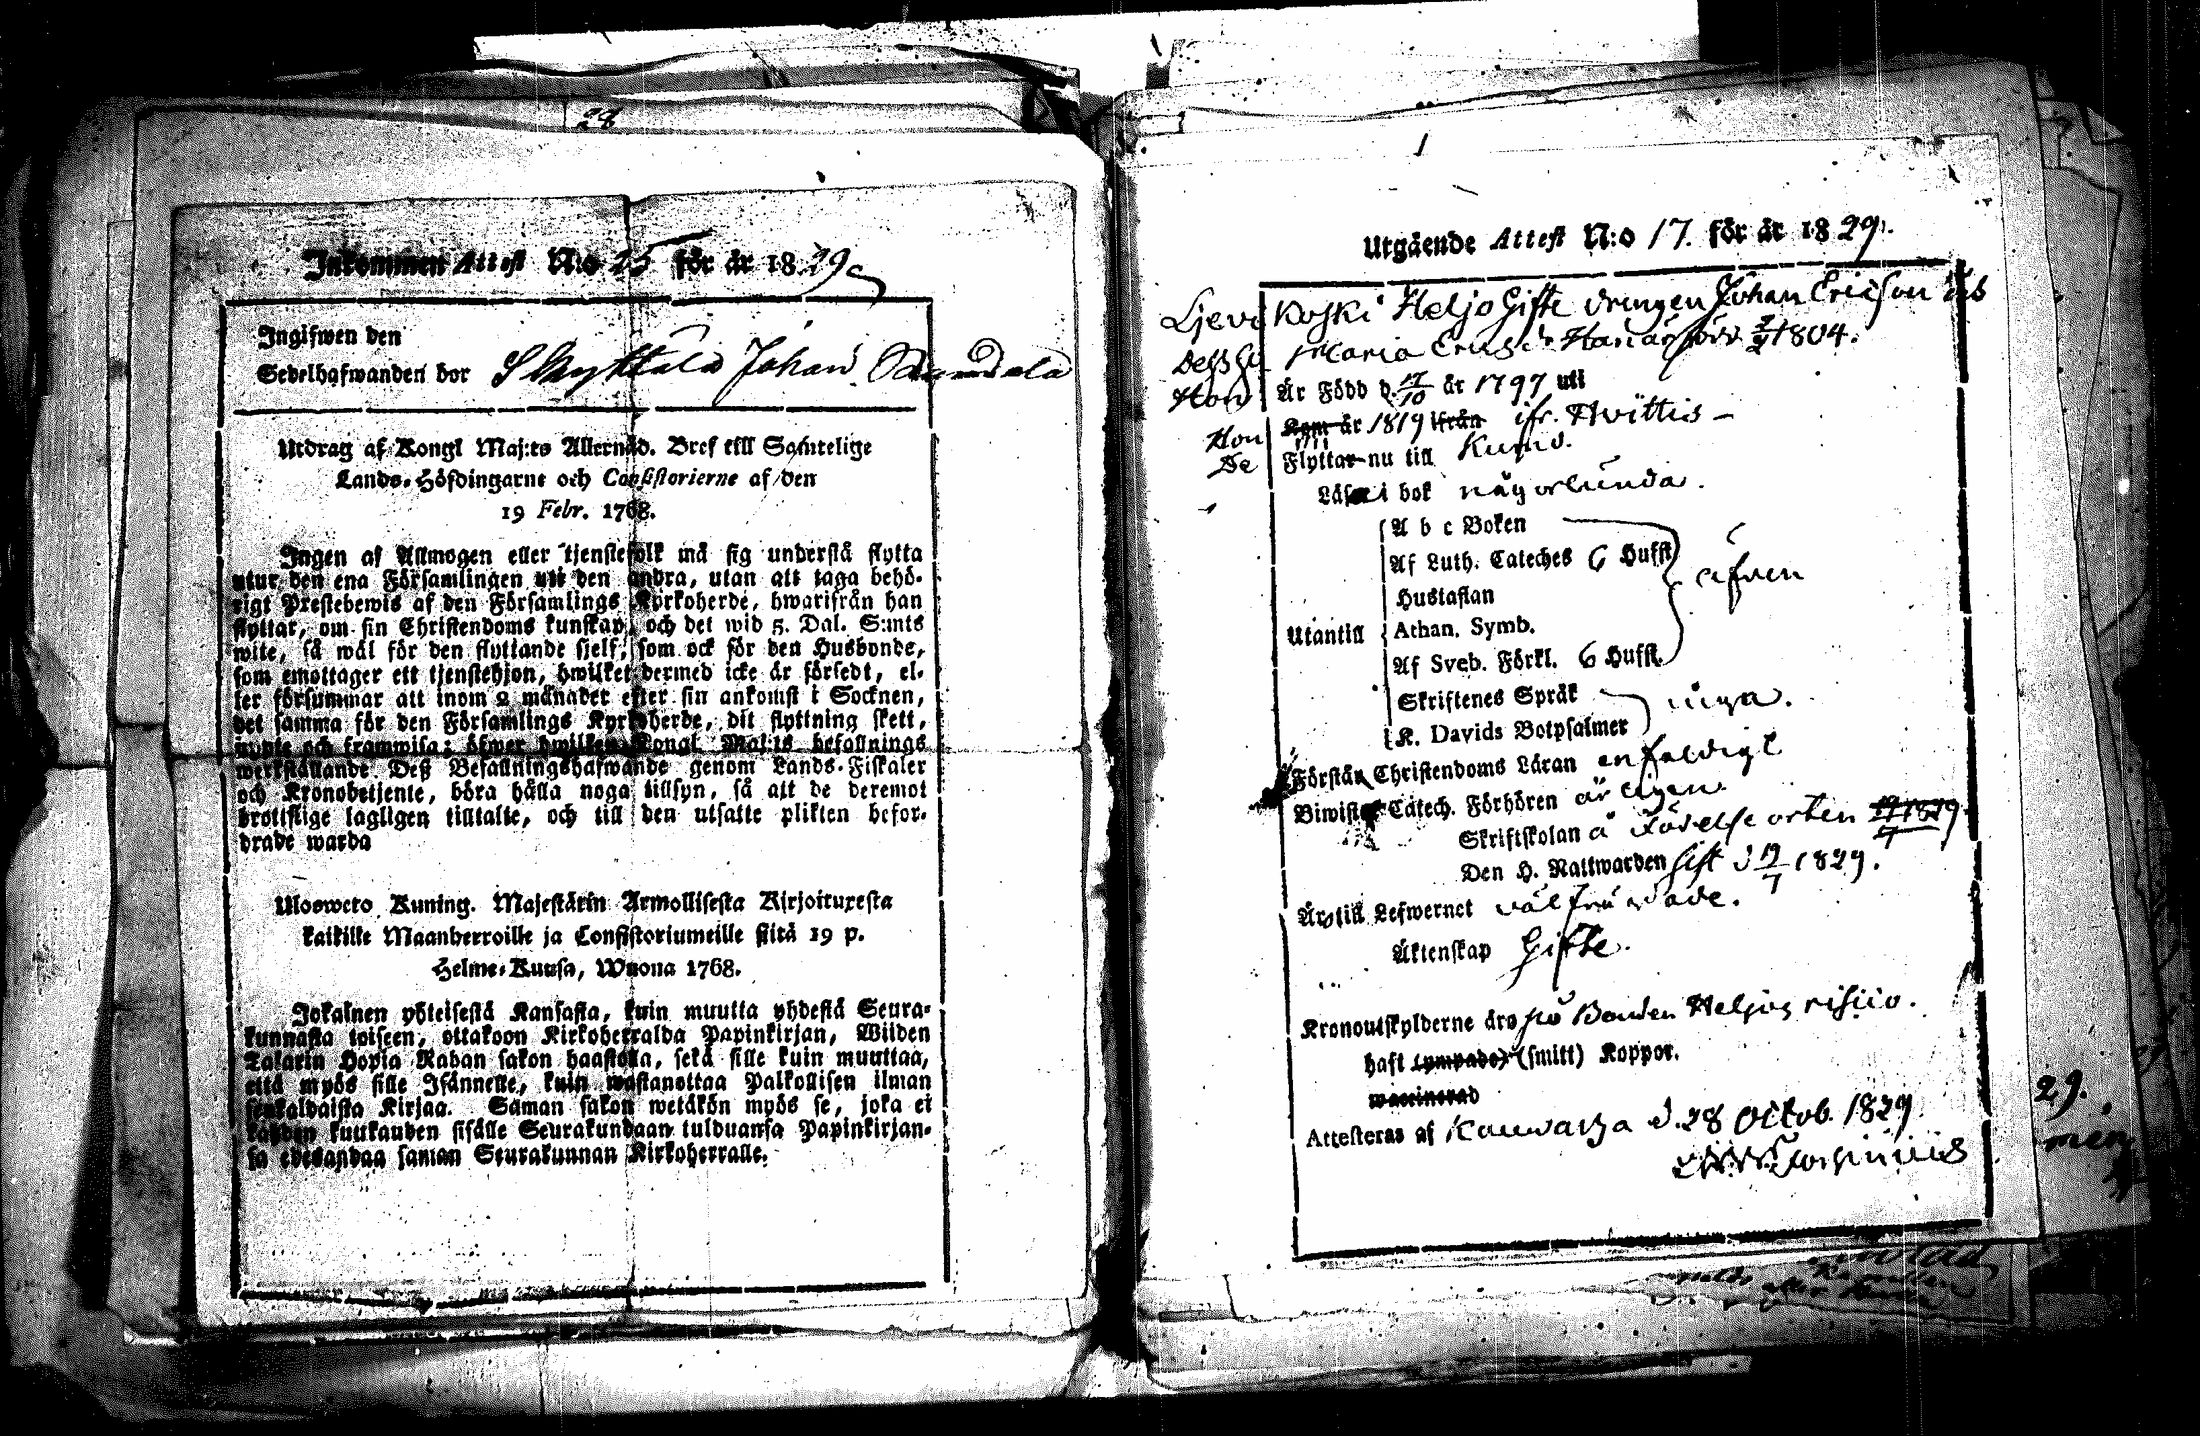 28
Inkommen Attest N:o 25 för år 1829
Ingifwen den
Sedelhafwanden bor Skyttälä Johan
Utdrag af Kongl Maj:ts Allernåd. Bref till Samtelige
Lands-Höfdingarne och Consistorierne af den
19 Febr. 1768.
Ingen af Allmogen eller tjenstefolk må sig understå flytta
utur den ena Församlingen uti den andra, utan att taga behö-
rigt Prestebewis af den Församlings Kyrkoherde, hwarifrån han
flyttar, om sin Christendoms kunskap, och det wid 5. Dal. S:mts
wite, så wäl för den flyttande sielf, som ock för den Husbonde,
som emottager ett tjenstehjon, hwilket dermed icke är försedt, el-
ler försummar att inom 2 månader efter sin ankomst i Socknen,
det samma för den Församlings Kyrkoherde, dit flyttning skett,
uppte och framwisa; öfwer hwilken Kongl. Maj:ts befallnings
werkställande Deß Befallningshafwande genom Lands-Fiskaler
och Kronobetjente, böra hålla noga tillsyn, så att de deremot
brotslige lagligen tilltalte, och till den utsatte plikten befor-
drade warda
Uloswoto Kuning. Majestätin Armollisesta Kirjoituxesta
kaikille Maanherroille ja Consistoriumeille siitä 19 p.
Helme-Kuusa, Wuona 1768.
Jokainen yhteisestä Kansasta, kuin muutta yhdestä Seura-
kunnasta toiseen, ottakoon Kirkoherralda Papinkirjan, Wiiden
Talarin Hopia Rahan sakon haastolla, sekä sille kuin muuttaa,
että myös sille Isännelle, kuin wastanottaa Palkollisen ilman
senkaldaista Kirjaa. Saman sakon wetäkön myös se, joka ei
kahden kuukauden sisälle Seurakundaan tulduansa Papinkirjan-
sa edesandaa saman Seurakunnan Kirkoherralle.
1
Utgående Attest N:o 17. för år 1829.
Koski Heljo Gifte drengen Johan Ericson
Maria 1804.
Hon Är Född d. 17/10 år 1797 uti
Hon Kom år 1819 ifrån ifr. Hvittis -
De Flyttar nu till Kumo.
Läser i bok någorlunda.
A b c Boken
Af Luth. Cateches 6 Hufst.
Hustaflan
äfven
Utantill Athan. Symb.
Af Sveb. Förkl. 6 Hufst.
Skriftenes Språk
inga.
K. Davids Botpsalmer
Förstår Christendoms Läran enfaldigt
Biwistat Catech. Förhören är ägen.
Skriftskolan å Födelse orten
Den H. Nattwarden sist d 19/7 1829.
Är till Lefwernet välfräjdade.
Äktenskap Gifte.
Kronoutskylderne äro på Bonden Heljos
haft (ympade) (smitt) Koppor.
waccinerad
Attesteras af Kauwatza d. 28 Octob. 1829
29.